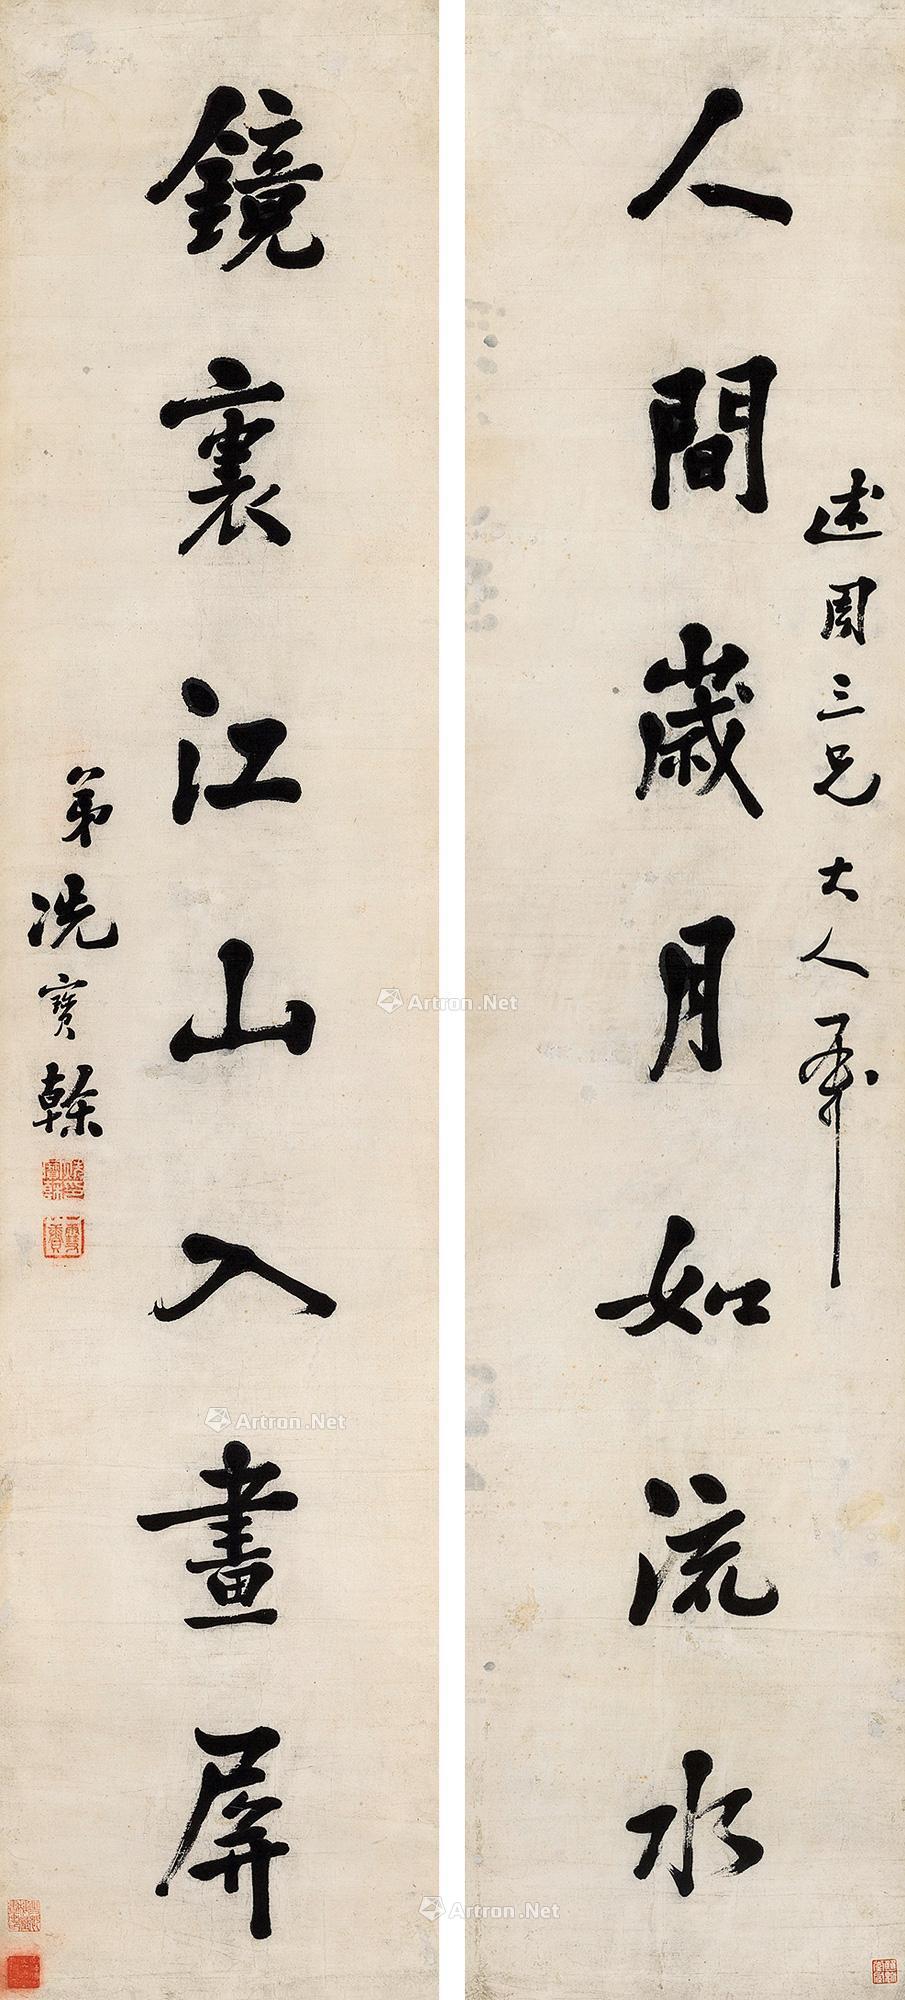 人間歲月如流水
述周三兄大人屬
鏡裏江山入畫屏
弟冼寶榦
Artron.Net
Artron.Net
Artron.Net